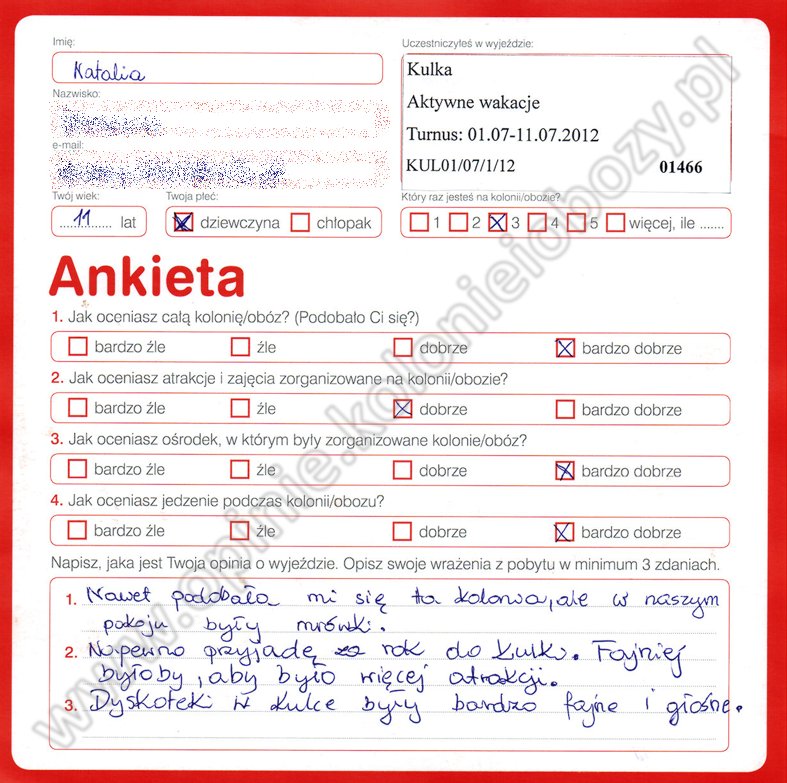 Imię:
Natalia
Nazwisko:
e-mail:
Twój wiek:
11 lat
Twoja płeć:
dziewczyna chłopak
Uczestniczyłeś w wyjeździe:
Kulka
Aktywne wakacje
Turnus: 01.07-11.07.2012
KUL01/07/1/12 01466
Który raz jesteś na kolonii/obozie?
1 2 3 4 5 więcej, ile .......
Ankieta
1. Jak oceniasz całą kolonię/obóz? (Podobało Ci się?)
bardzo źle źle dobrze bardzo dobrze
2. Jak oceniasz atrakcje i zajęcia zorganizowane na kolonii/obozie?
bardzo źle źle dobrze bardzo dobrze
3. Jak oceniasz ośrodek, w którym były zorganizowane kolonie/obóz?
bardzo źle źle dobrze bardzo dobrze
4. Jak oceniasz jedzenie podczas kolonii/obozu?
bardzo źle źle dobrze bardzo dobrze
Napisz, jaka jest Twoja opinia o wyjeździe. Opisz swoje wrażenia z pobytu w minimum 3 zdaniach.
1. Nawet podobała mi się ta kolonia, ale w naszym
pokoju były mrówki.
2. Napewno przyjadę za rok do Kulki. Fajniej
byłoby, aby było więcej atrakcji.
3. Dyskoteki w Kulce były bardzo fajne i głośne.
www.opinie.kolonieiobozy.pl